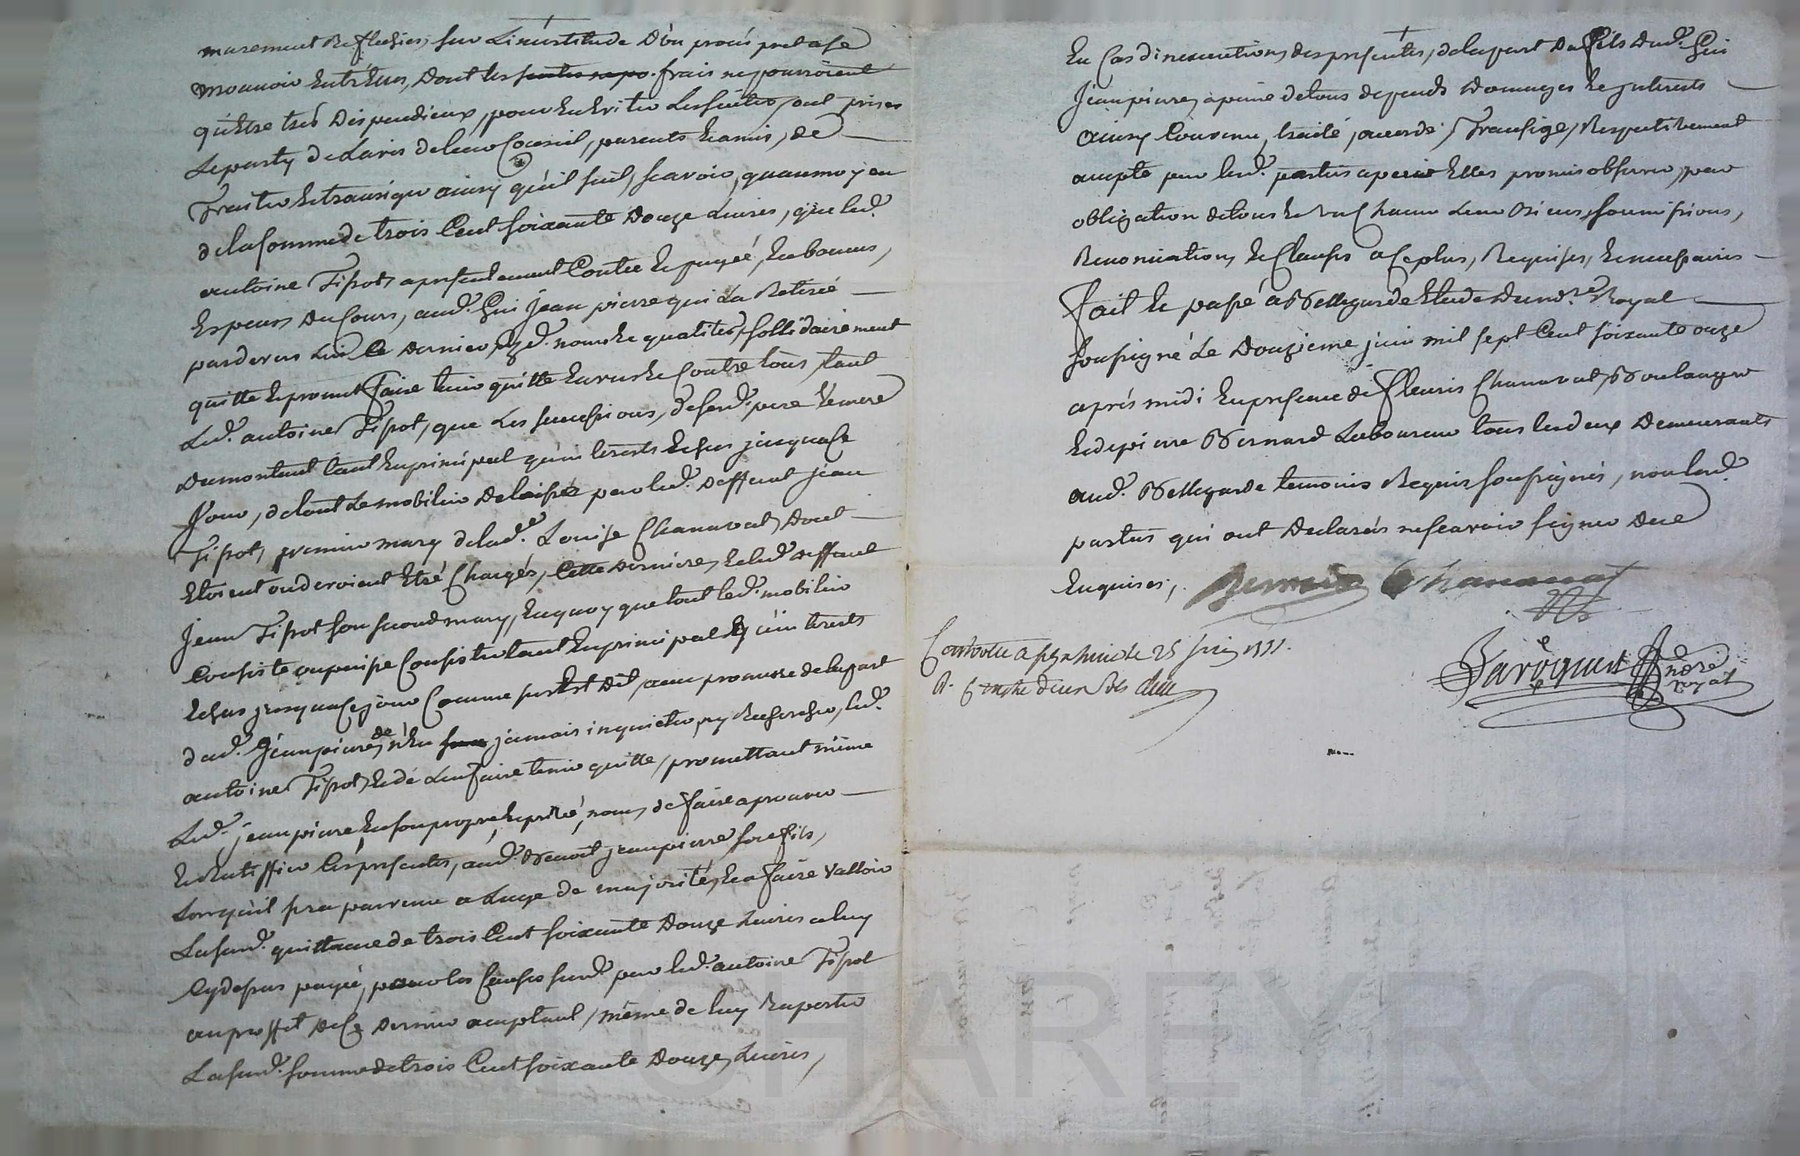 murement Reflechies, sur L'incertitude D'un procés pret ase
mouvoir Entr'Eux, Dont les frais ne pourroient
qu'Etre trés Dispendieux, pour En Eviter Les suites, ont prises
Le party de L'avis de leur Conseil, parents Et amis, de
Traiter Et transiger ainsy qu'il suit, scavoir, quau moyen
de la somme de trois Cent soixante Douze Livres, que led.
antoine Tissot, a presentement Contée Et payée, En bonnes,
Especes Du Cours, aud. Gui Jean pierre qui La Retirée
par devers Lui Ce Dernier, aud. nom Et qualités, sollidairement
quitte Et promet faire tenir quitte Envers Et Contre tous, tant
Led. antoine Tissot, que Les successions, de sesd. pere Et mere
Du montant tant En principal qu'interests Echus jusqu'a Ce
Jour, de tout Le mobilier Delaissée par led. Deffunt Jean
Tissot, premier mary de lad. Louise Chanavat, Dont
Etoient ou devoient Etre Chargés, Cette Derniere, Et led. Deffunt
Jean Tissot son second mary, En quoy que tout led. mobilier
Consiste ou puisse Consister tant En principal qu'interests
Echus jusqu'a Ce jour Comme sus Est Dit, avec promesse de la part
dud. Jean pierre, de n'En jamais inquieter, ny Rechercher, led.
antoine Tissot, Et de L'en faire tenir quitte, promettant même
Led. jean pierre, En son propre Et privé, nom, de faire aprouver
Et Ratiffier Les presentes, aud. Benoit jean pierre, son fils,
Lorsqu'il sera parvenu a L'age de majorité, Et a faire Valloir
La susd. quittance de trois Cent soixante Douze Livres a luy
Cy dessus payée, pour les Causes susd. par led. antoine Tissot
au proffit De Ce Dernier acceptant, même de luy Raporter
La susd. somme de trois Cent soixante Douze, Livres,
En Cas d'inexecution, des presentes, de la part Du fils Dud. Gui
Jean pierre, a peine de tous depends Domages Et Interests
Ainsy Convenu, traité, accordé, Transigé, Respectivement
accepté par lesd. parties a peine Elles promis observer, par
obligation de tous Et un Chacun Leurs Biens, soumissions,
Renonciations, Et Clauses a Ce plus, Requises, Et necessaires
Fait Et passé a Bellegarde Etude Du not.re Royal
soussigné Le Douzieme juin mil sept Cent soixante onze
aprés midi En presence de fleuris Chanavat, Boulanger
Et de pierre Bernard Laboureur tous les deux Demeurants
aud. Bellegarde temoins Requis soussignés, non lesd.
parties qui ont Declarés ne scavoir signer De ce
Enquises,
Bernard Chanavat
Controlé a St Galmier le 25 juin 1771.
R.
Paroquet
no.re
royal
CHAREYRON